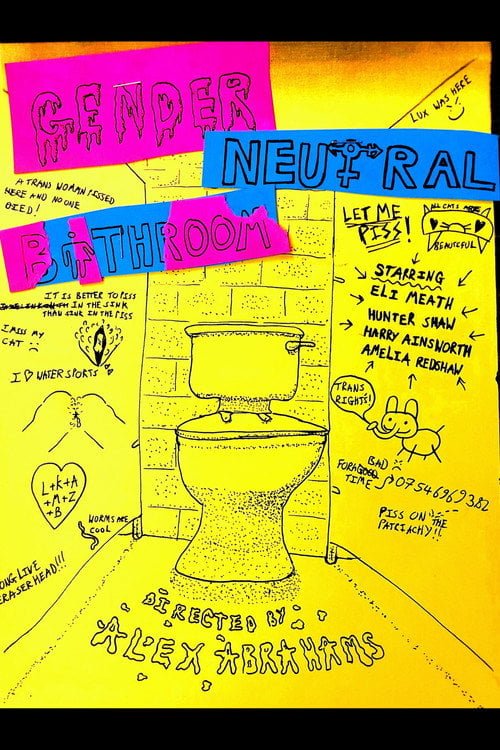 GENDER
NEUTRAL
BATHROOM
LUX WAS HERE
A TRANS WOMAN PISSED
HERE AND NO ONE
DIED!
LET ME
PISS!
ALL CATS ARE
BEAUTIFUL
STARRING
ELI MEATH
HUNTER SHAW
HARRY AINSWORTH
AMELIA REDSHAW
IT IS BETTER TO PISS
IN THE SINK
THAN SINK IN THE PISS
I MISS MY
CAT :(
I ♡ WATERSPORTS
TRANS
RIGHTS!
BAD
FOR A GOOD
TIME
07546969382
PISS ON THE
PATRIACHY!!
L+K+A
+M+Z
+B
WORMS ARE
COOL
LONG LIVE
ERASERHEAD!!!
DIRECTED BY
ALEX ABRAHAMS